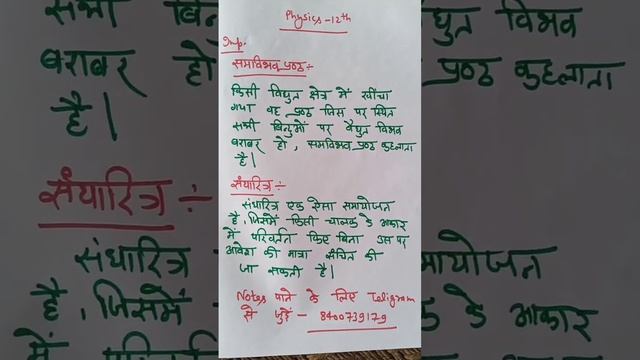 Physics-12th
Imp.
समविभव पृष्ठ :-
किसी विद्युत क्षेत्र में खींचा
गया वह पृष्ठ जिस पर स्थित
सभी बिन्दुओं पर वैद्युत विभव
बराबर हो, समविभव पृष्ठ कहलाता
है।
संधारित्र :-
संधारित्र एक ऐसा समायोजन
है, जिसमें किसी चालक के आकार
में परिवर्तन किए बिना उस पर
आवेश की मात्रा संचित की
जा सकती है।
Notes पाने के लिए Teligram
से जुड़ें - 8400739179